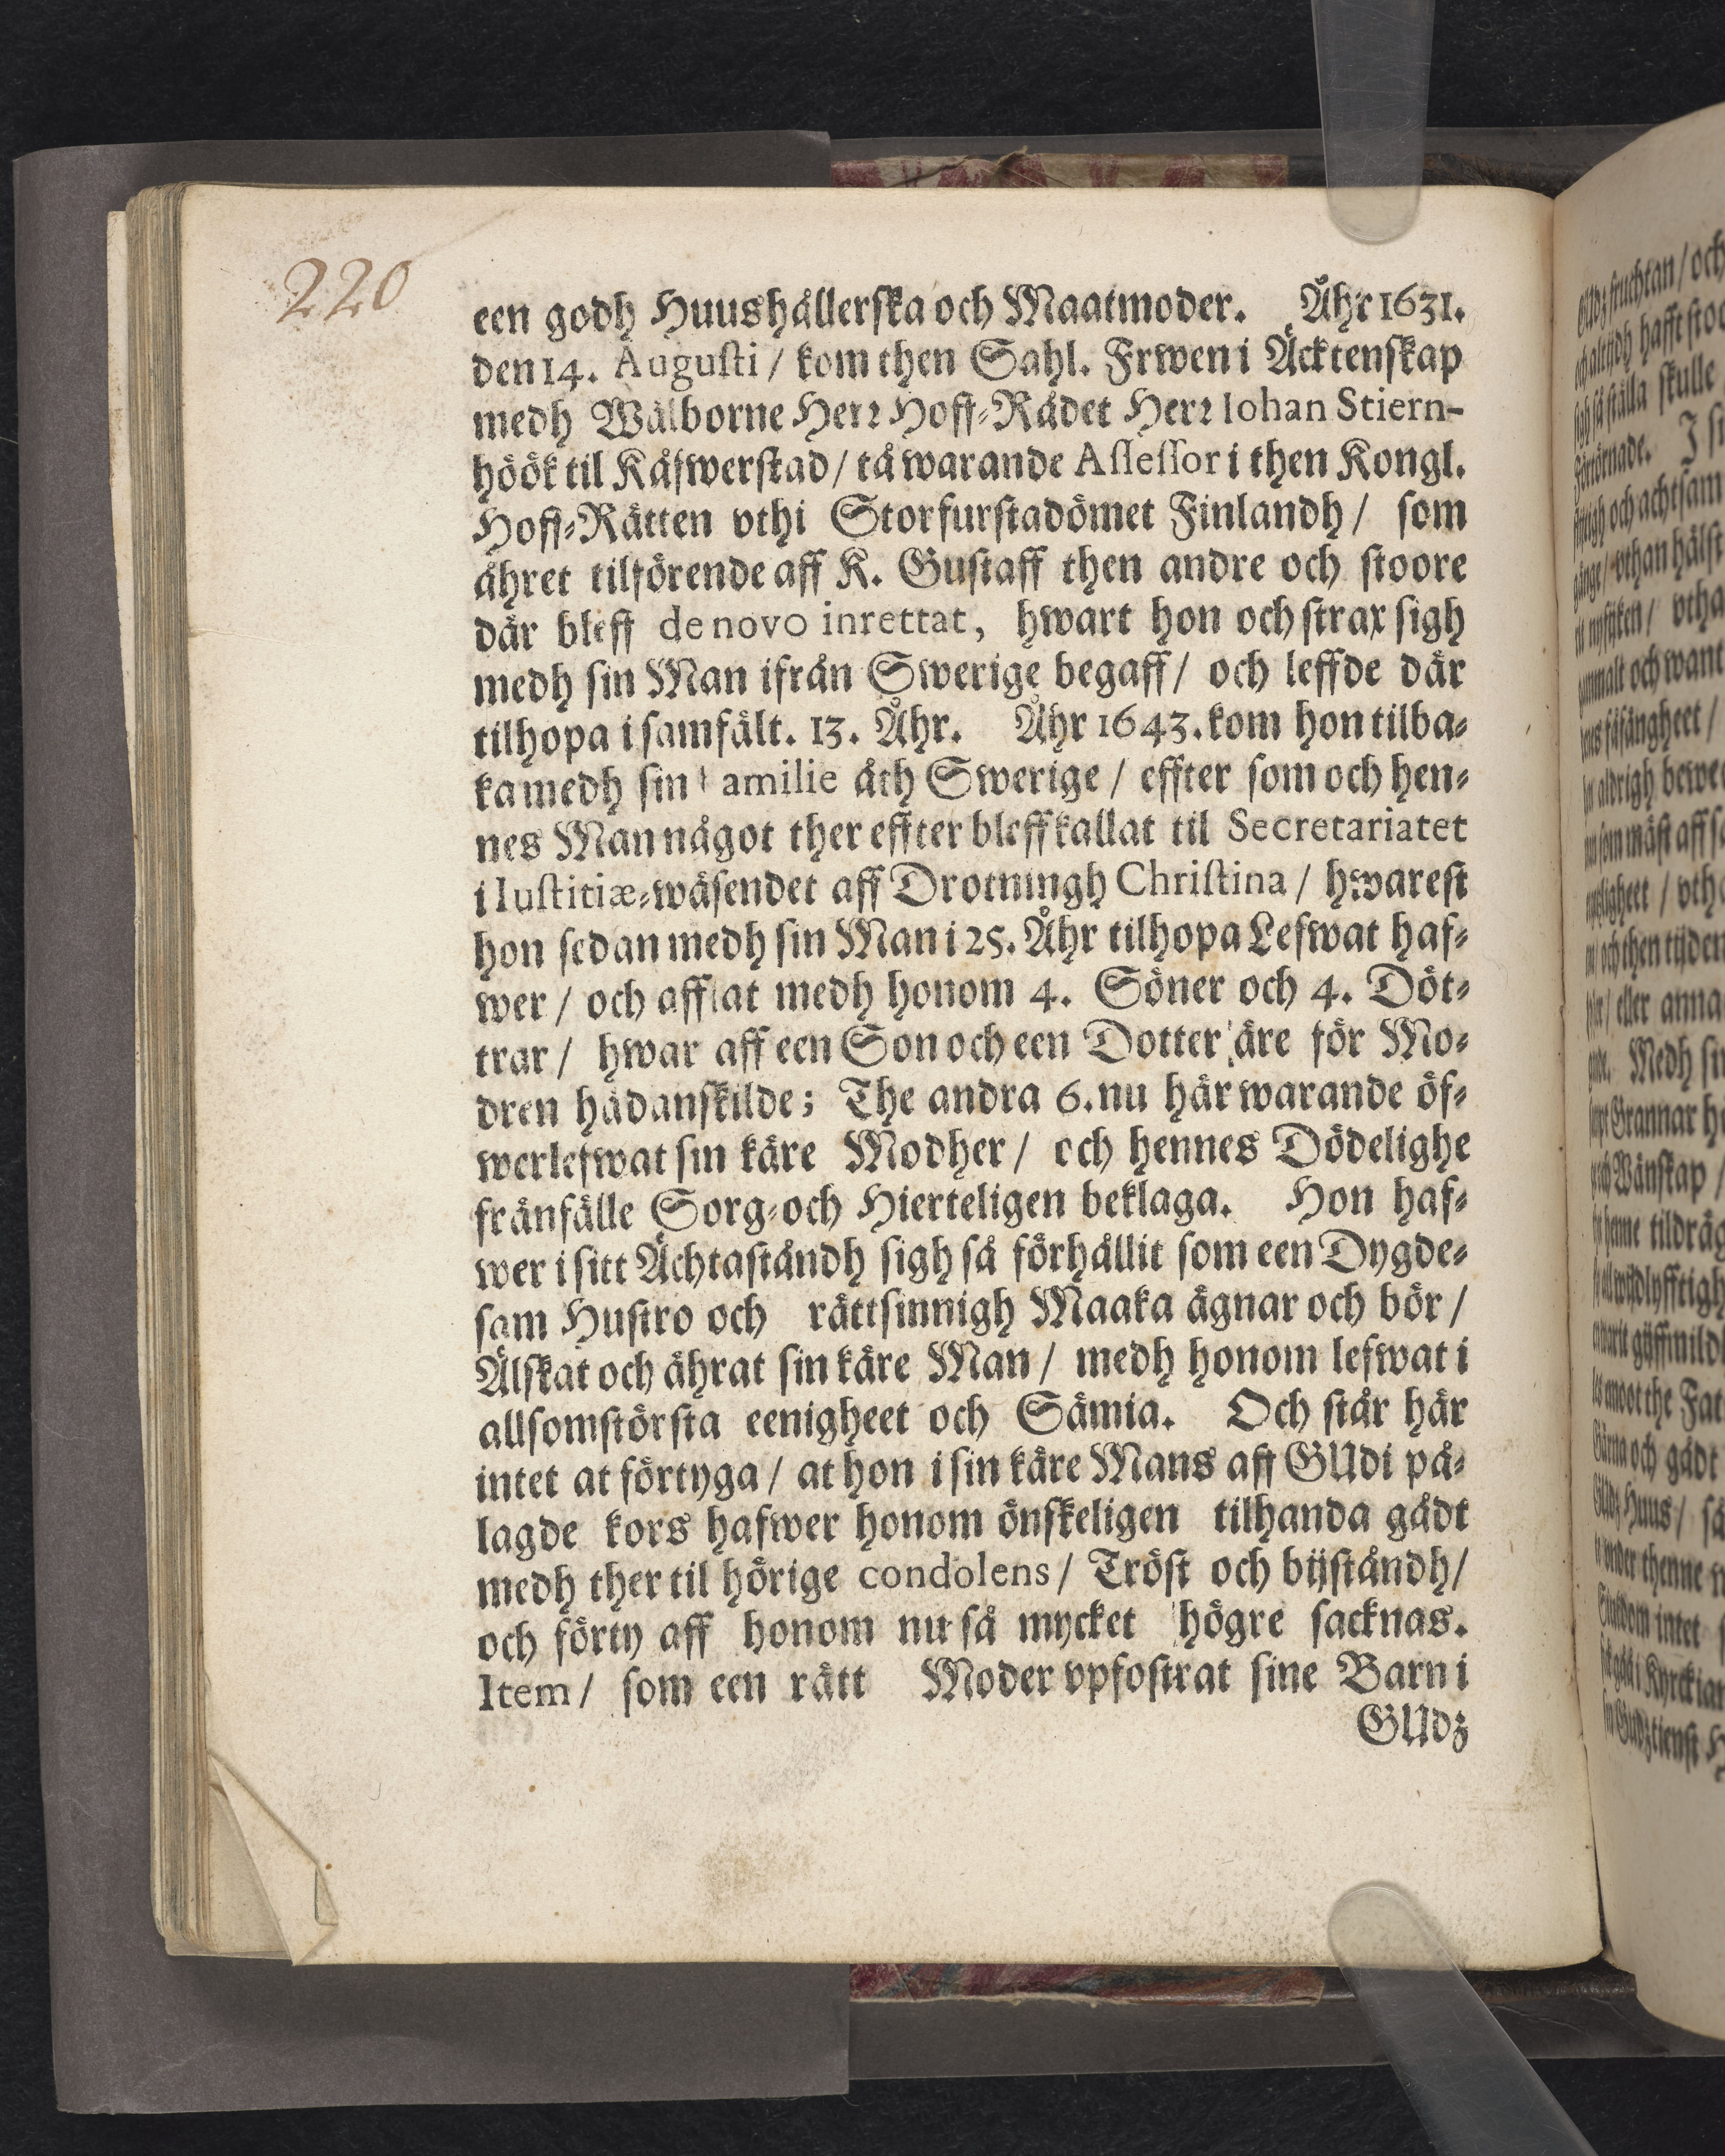 220
een godh Huushållerska och Maatmoder. Åhr 1631.
den 14. Augusti / kom then Sahl. Frwen i Äcktenskap
medh Wälborne Herr Hoff-Rådet Herr Iohan Stiern-
höök til Kåfwerstad / tå warande Assessor i then Kongl.
Hoff-Rätten vthi Storfurstadömet Finlandh / som
åhret tilförende aff K. Gustaff then andre och stoore
där bleff de novo inrettat, hwart hon och strax sigh
medh sin Man ifrån Swerige begaff / och leffde där
tilhopa i samfält. 13. Åhr. Åhr 1643. kom hon tilba-
ka medh sin familie åth Swerige / effter som och hen-
nes Man något ther effter bleff kallat til Secretariatet
i Iustitiæ-wäsendet aff Drotningh Christina / hwarest
hon sedan medh sin Man i 25. Åhr tilhopa Lefwat haf-
wer / och afflat medh honom 4. Söner och 4. Döt-
trar / hwar aff een Son och een Dotter äre för Mo-
dren hädanskilde; The andra 6. nu här warande öf-
werlefwat sin käre Modher / och hennes Dödelighe
frånfälle Sorg- och Hierteligen beklaga. Hon haf-
wer i sitt Ächtaståndh sigh så förhållit som een Dygde-
sam Hustro och rättsinnigh Maaka ägnar och bör /
Älskat och ährat sin käre Man / medh honom lefwat i
allsomstörsta eenigheet och Sämia. Och står här
intet at förtyga / at hon i sin käre Mans aff GUdi på-
lagde kors hafwer honom önskeligen tilhanda gådt
medh ther til hörige condolens / Tröst och bijståndh /
och förty aff honom nu så mycket högre sacknas.
Item / som een rätt Moder vpfostrat sine Barn i
GUdz